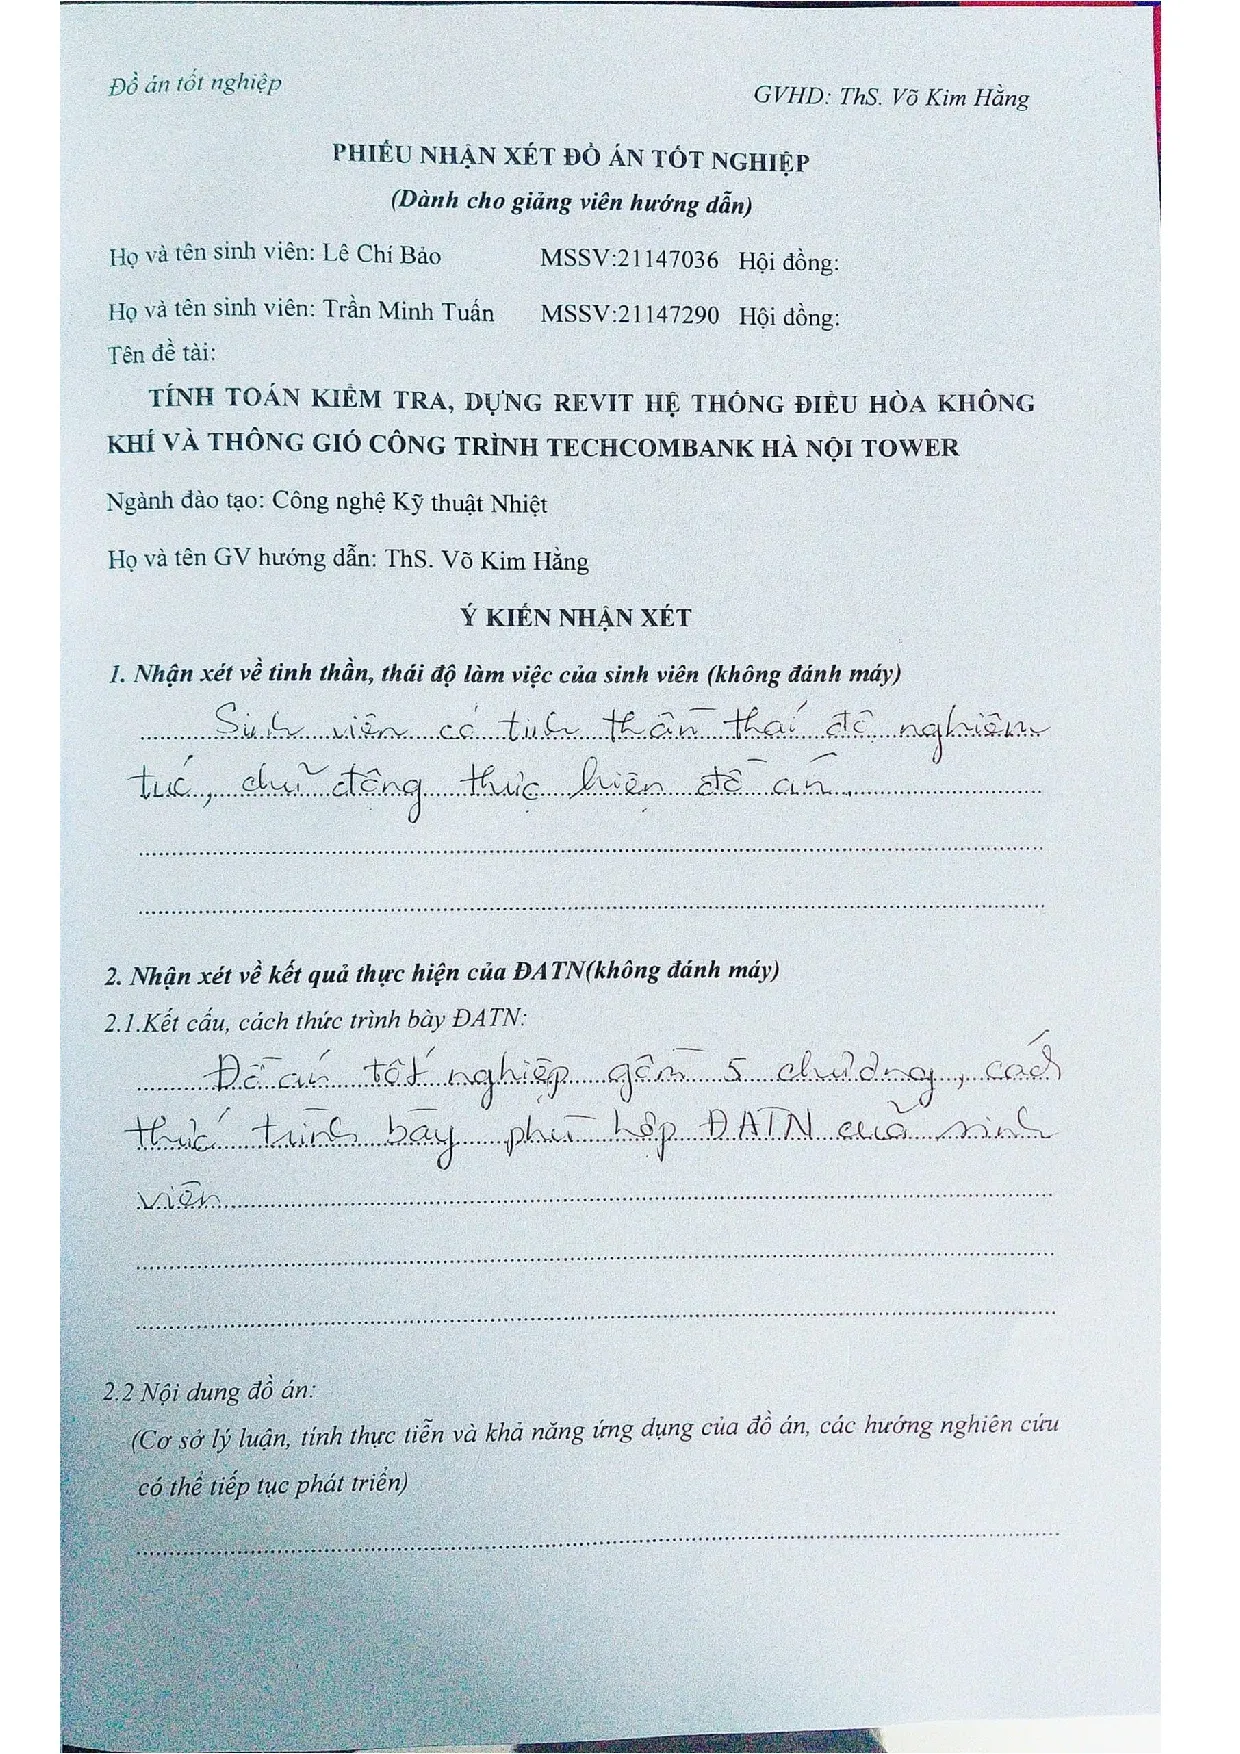 Đồ án tốt nghiệp
GVHD: ThS. Võ Kim Hằng
PHIẾU NHẬN XÉT ĐỒ ÁN TỐT NGHIỆP
(Dành cho giảng viên hướng dẫn)
Họ và tên sinh viên: Lê Chí Bảo MSSV:21147036 Hội đồng:
Họ và tên sinh viên: Trần Minh Tuấn MSSV:21147290 Hội đồng:
Tên đề tài:
TÍNH TOÁN KIỂM TRA, DỰNG REVIT HỆ THỐNG ĐIỀU HÒA KHÔNG
KHÍ VÀ THÔNG GIÓ CÔNG TRÌNH TECHCOMBANK HÀ NỘI TOWER
Ngành đào tạo: Công nghệ Kỹ thuật Nhiệt
Họ và tên GV hướng dẫn: ThS. Võ Kim Hằng
Ý KIẾN NHẬN XÉT
1. Nhận xét về tinh thần, thái độ làm việc của sinh viên (không đánh máy)
Sinh viên có tinh thần thái độ nghiêm
túc, chủ động thực hiện đồ án.
2. Nhận xét về kết quả thực hiện của ĐATN(không đánh máy)
2.1.Kết cấu, cách thức trình bày ĐATN:
Đồ án tốt nghiệp gồm 5 chương, cách
thức trình bày phù hợp ĐATN của sinh
viên
2.2 Nội dung đồ án:
(Cơ sở lý luận, tính thực tiễn và khả năng ứng dụng của đồ án, các hướng nghiên cứu
có thể tiếp tục phát triển)